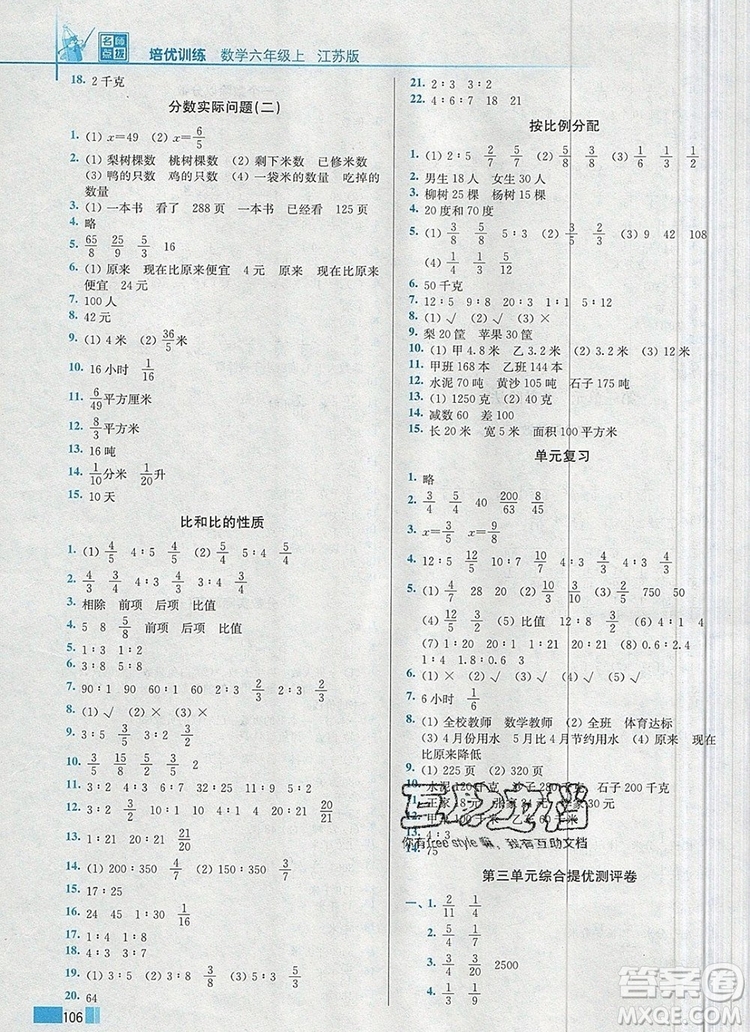 名师
点拨
培优训练 数学六年级上 江苏版
18. 2 千克
分数实际问题(二)
1. (1) x=49 (2) x=6/5
2. (1) 梨树棵数 桃树棵数 (2) 剩下米数 已修米数
(3) 鸭的只数 鸡的只数 (4) 一袋米的数量 吃掉的
数量
3. (1) 一本书 看了 288 页 一本书 已经看 125 页
4. 略
5. 65/8 25/9 5/3 16
6. (1) 原来 现在比原来便宜 4 元 原来 现在比原来
便宜 24 元
7. 100 人
8. 42 元
9. (1) 4 米 (2) 36/5 米
10. 16 小时 1/16
11. 6/49 平方厘米
12. 8/3 平方米
13. 16 吨
14. 1/10 分米 1/20 升
15. 10 天
比和比的性质
1. (1) 4/5 4∶5 4/5 (2) 5/4 5∶4 5/4
2. 4/3 3/4 4/3 4∶3 3/4
3. 相除 前项 后项 比值
4. 5 8 5/8 前项 后项 比值
5. 1∶3 1∶4
6. 3∶8 5∶8
7. 90∶1 90 60∶1 60 2∶3 2/3 3∶2 3/2
8. (1) √ (2) × (3) ×
9. 3∶5 3/5 2∶5 2/5
10. 2/3 5/2 15/2
11. 3∶2 9∶10 4∶3 3∶2 3∶2 2∶3
12. 3∶2 3∶4 1∶6 1∶10 20∶21 20/21
13. 1∶21 21∶20 21/20
14. (1) 20∶1 (2) 350∶7
15. 17∶25
16. 24 64 40
17. 1∶4 1∶8
18. 4∶3 4∶7
19. (1) 3∶5 (2) 3∶8 3/8 (3) 5∶8 5/8
20. 64
106
21. 2∶3 3∶2
22. 4∶6∶7 18 21
按比例分配
1. (1) 2∶5 2/7 5/7 (2) 5/8 3/8 (3) 1/6 1/3 1/2
2. 男生 18 人 女生 30 人
3. 柳树 25 棵 杨树 15 棵
4. 20 度和 70 度
5. (1) 3/8 5/8 (2) 6/11 5/11 (3) 9 42 108
(4) 1/4 1/4 1/2
6. 50 千克
7. 12∶5 9∶8 20∶3 4∶1 1∶1 5∶12
8. (1) √ (2) √ (3) ×
9. 梨 20 筐 苹果 30 筐
10. (1) 甲 4.8 米 乙 3.2 米 (2) 3.2 米 (3) 12 米
11. 甲班 168 本 乙班 144 本
12. 水泥 70 吨 黄沙 105 吨 石子 175 吨
13. (1) 1250 克 (2) 40 克
14. 减数 60 差 100
15. 长 20 米 宽 5 米 面积 100 平方米
单元复习
1. 略
2. 3/4 5/4 40 200/63 8/45
3. x=3/5 x=9/8
4. 12∶5 12/5 10∶7 10/7 4∶3 4/3 1∶4 1/4
5. (1) 4/7 28 20 (2) 3/10 3/10 (3) 2/3 750 50
(4) 12/5 5/12 (5) 比值 3/2 (6) 2∶1 4∶1
(7) 1∶20 20 1∶21 20∶21 (8) 0.6∶2.4
1∶4 1∶4
6. (1) × (2) √ (3) × (4) √ (5) √
7. 6 小时 1/6
8. (1) 全校教师 数学教师 (2) 全班 体育达标
(3) 4 月份用水 5 月比 4 月节约用水 (4) 原来 现在
比原来降低
9. (1) 225 页 (2) 320 页
10. 水泥 210 克 280 千克 石子 200 千克
11. 王家 18 元 张家 24 元 30 元
12. 甲
13. 4∶3
14. 75
互助文档
你有free style嘛，我有互助文档
第三单元综合提优测评卷
一、1. 2/11 1/4
2. 5/4 1/7
3. 5/3 3/20 2500
4. 4/9 1/4
答案圈
MXQE.COM